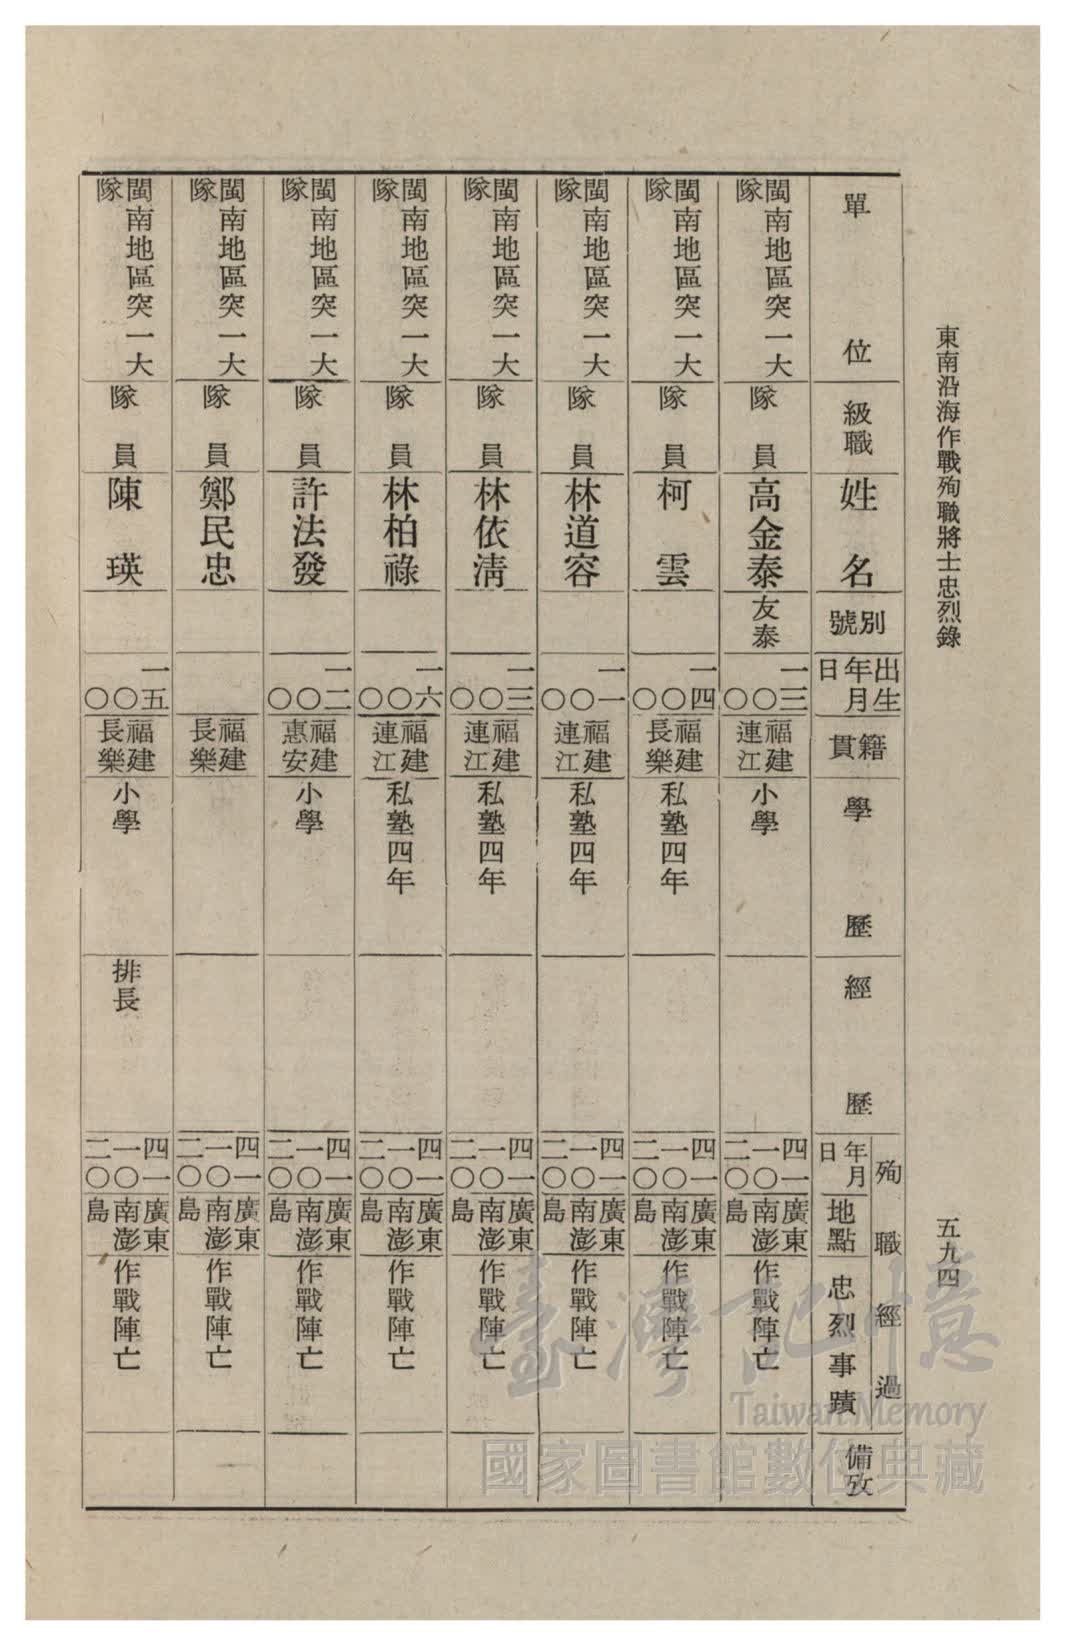 東南沿海作戰殉職將士忠烈錄
五九四
單位 級職 姓名 別號 出生年月日 籍貫 學歷 經歷 殉職經過 年月日 地點 忠烈事蹟 備攷
閩南地區突一大隊 隊員 高金泰 友泰 一三 〇 〇 福建連江 小學 四一 一〇 二〇 廣東南澎島 作戰陣亡
閩南地區突一大隊 隊員 柯雲 一四 〇 〇 福建長樂 私塾四年 四一 一〇 二〇 廣東南澎島 作戰陣亡
閩南地區突一大隊 隊員 林道容 一一 〇 〇 福建連江 私塾四年 四一 一〇 二〇 廣東南澎島 作戰陣亡
閩南地區突一大隊 隊員 林依清 一三 〇 〇 福建連江 私塾四年 四一 一〇 二〇 廣東南澎島 作戰陣亡
閩南地區突一大隊 隊員 林柏祿 一六 〇 〇 福建連江 私塾四年 四一 一〇 二〇 廣東南澎島 作戰陣亡
閩南地區突一大隊 隊員 許法發 一二 〇 〇 福建惠安 小學 四一 一〇 二〇 廣東南澎島 作戰陣亡
閩南地區突一大隊 隊員 鄭民忠 福建長樂 四一 一〇 二〇 廣東南澎島 作戰陣亡
閩南地區突一大隊 隊員 陳瑛 一五 〇 〇 福建長樂 小學 排長 四一 一〇 二〇 廣東南澎島 作戰陣亡
臺灣記憶
Taiwan Memory
國家圖書館數位典藏